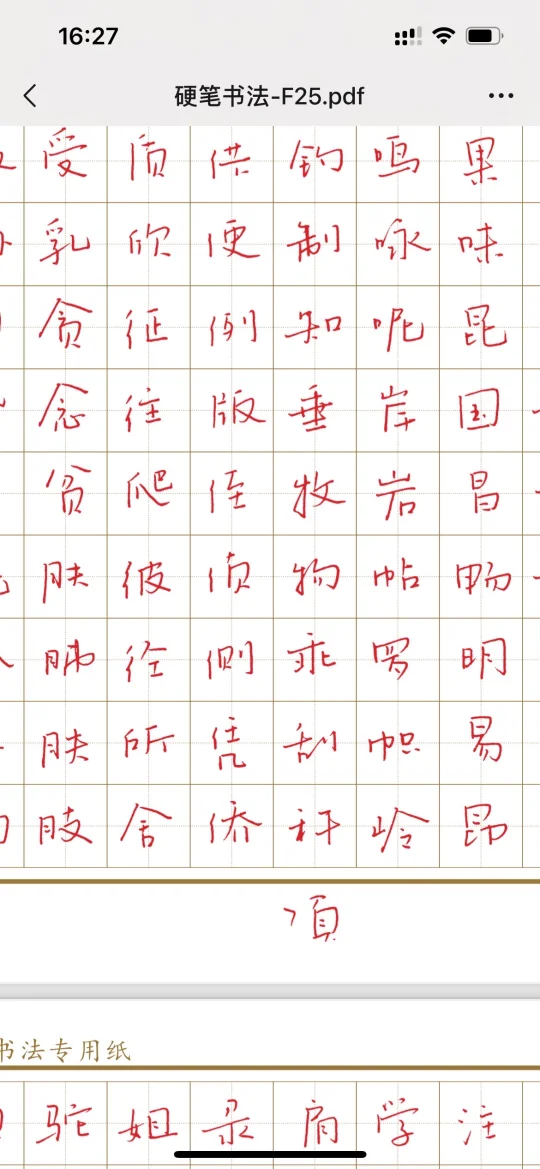 16:27
硬笔书法-F25.pdf
受 质 供 钓 鸣 果
乳 欣 便 制 咏 味
贪 征 例 知 呢 昆
念 往 版 垂 岸 国
贫 爬 侄 牧 岩 昌
肤 彼 侦 物 帖 畅
肺 径 侧 乖 罗 明
肤 所 凭 刮 帜 易
肢 舍 侨 秆 岭 昂
书法专用纸
驼 姐 录 肩 学 注